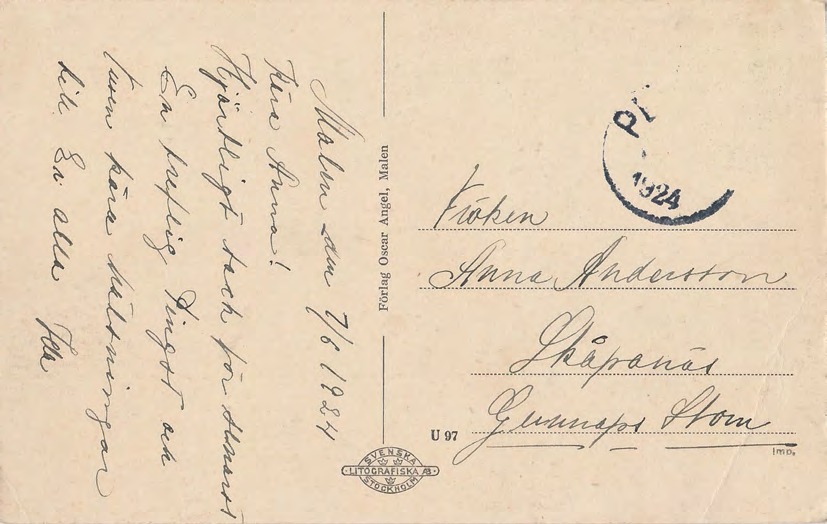 Malen den 7/6 1924
Kära Anna!
Hjärtligt tack för senast
En treflig Pingst och
tusen kära hälsningar
till Er alla
Förlag Oscar Angel, Malen
1924
Fröken
Anna Andersson
Skåpanäs
Gunnaps Stom
U 97
SVENSKA
LITOGRAFISKA AB.
STOCKHOLM
Imp.